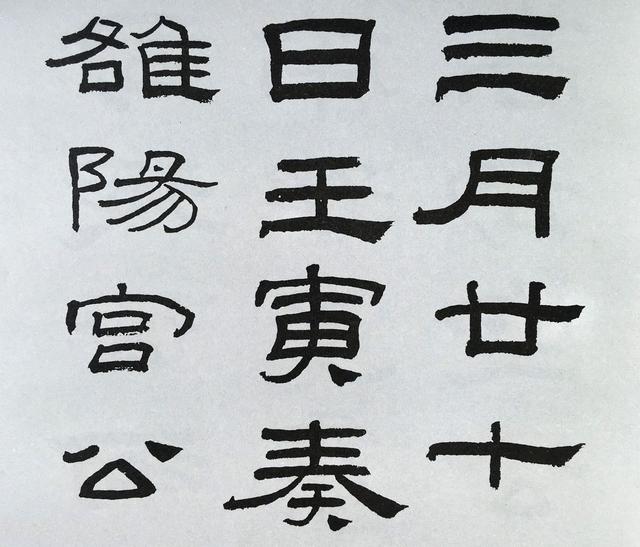 三月廿七
日壬寅奏
雒陽宮公